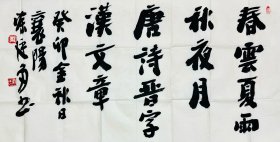 春雲夏雨
秋夜月
唐詩晉字
漢文章
癸卯金秋日
襄陽